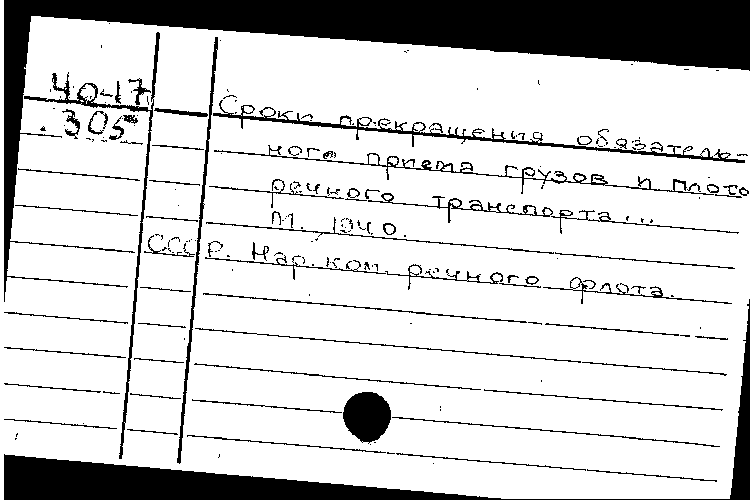 40-17
.305
Сроки прекращения обязатель-
ного приема грузов и плото
речного транспорта...
М., 1940.
СССР. Нар. ком. речного флота.